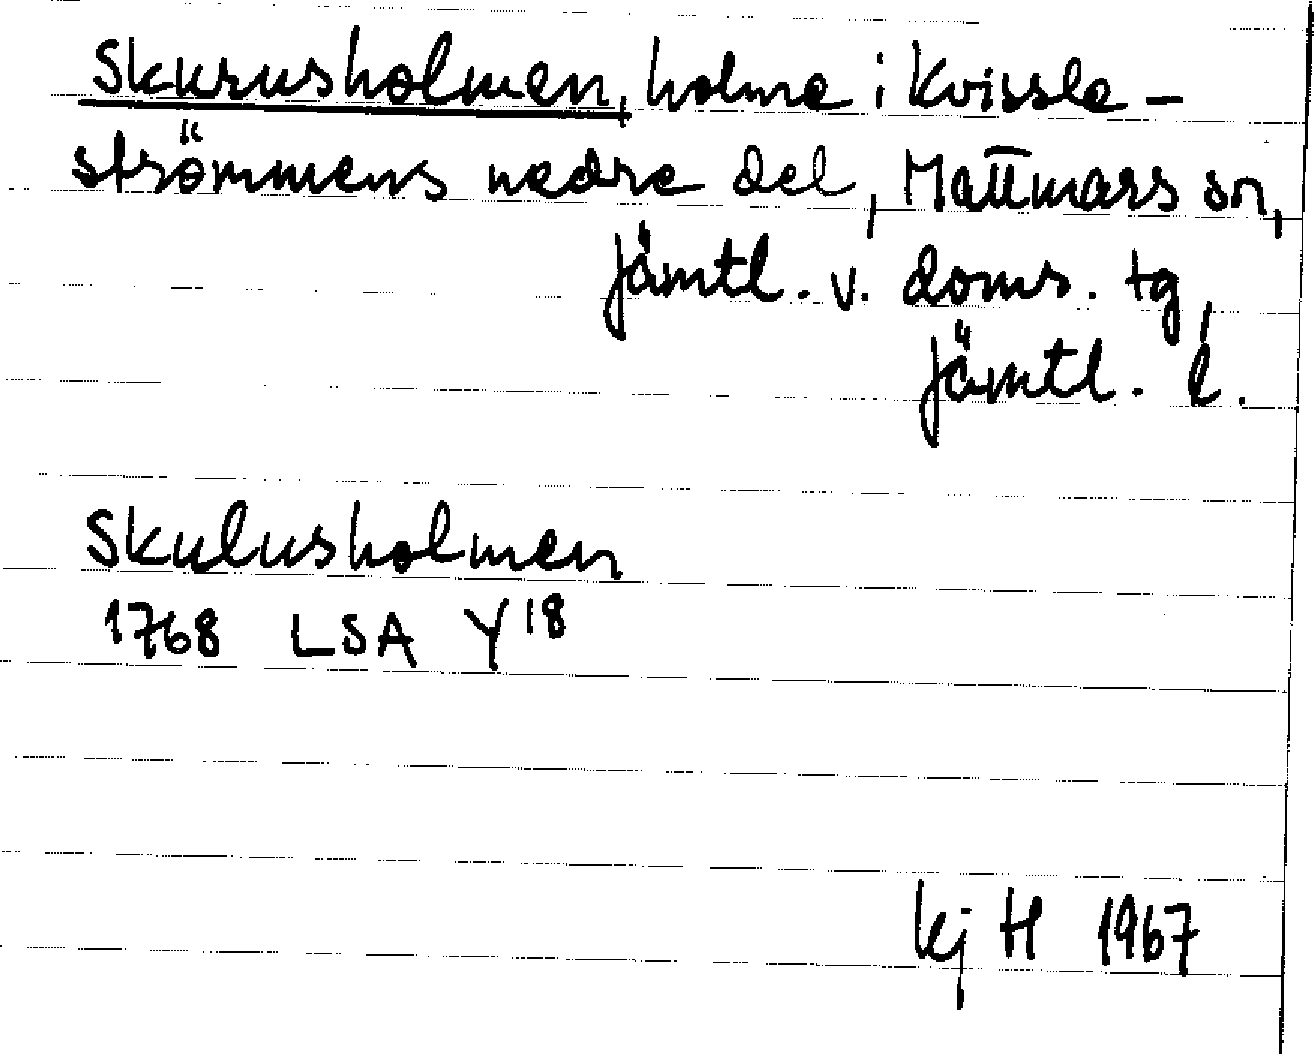 Skurusholmen, holme i Kvissle-
strömmens nedre del, Mattmars sn,
Jämtl. v. doms. tg,
Jämtl. l.
Skulusholmen
1768 LSA Y18
kj H 1967